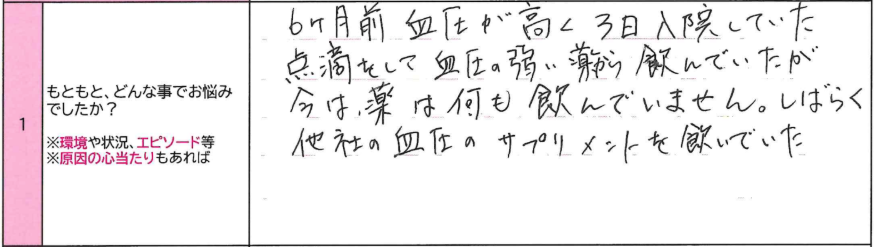 1
もともと、どんな事でお悩み
でしたか？
※環境や状況、エピソード等
※原因の心当たりもあれば
6ヶ月前 血圧が高く 3日入院していた
点滴をして 血圧の弱い薬から 飲んでいたが
今は、薬は何も飲んでいません。しばらく
他社の血圧のサプリメントを飲いでいた